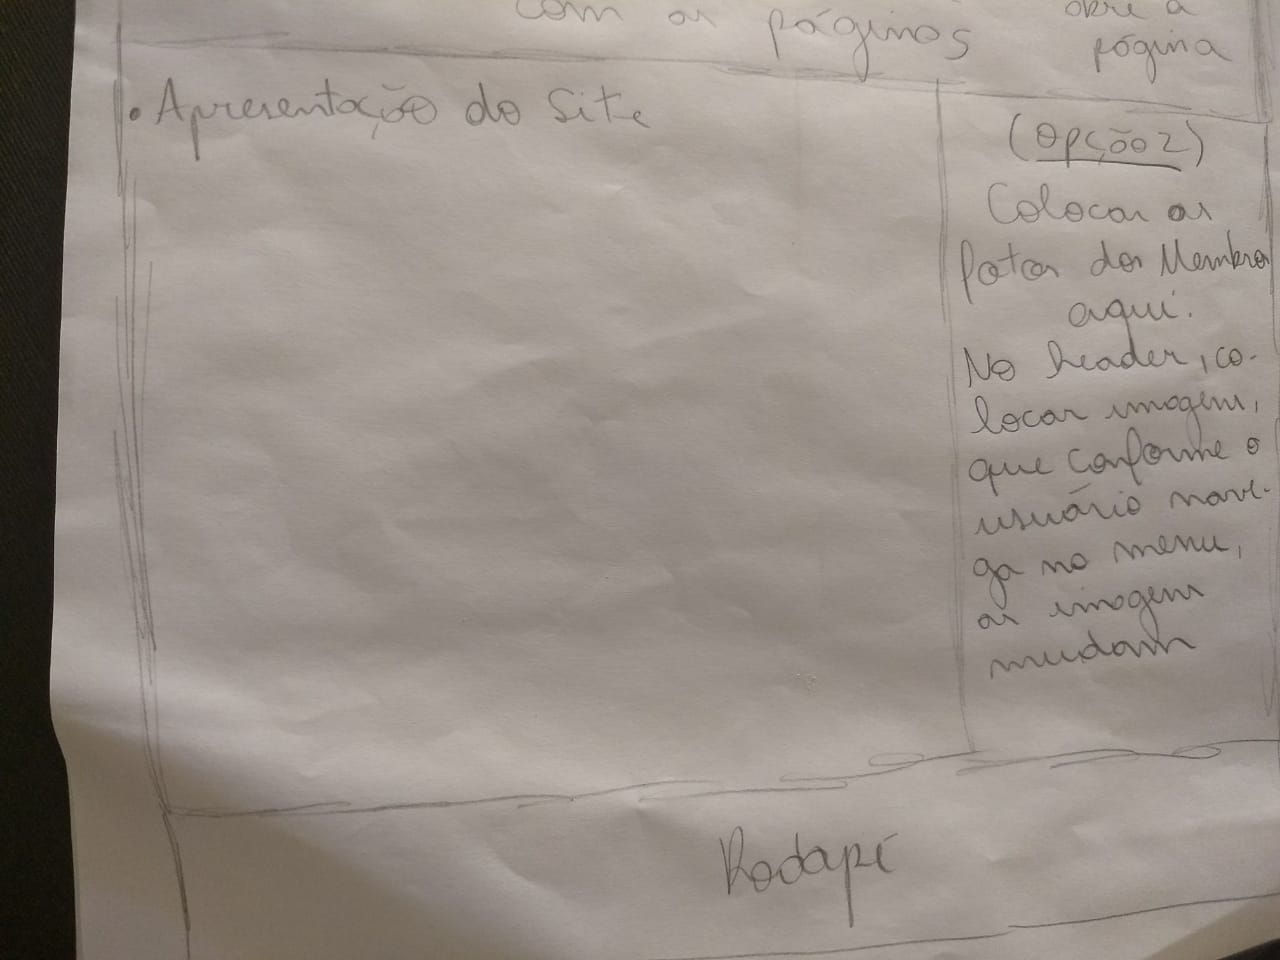 com as páginas
abre a
página
• Apresentação do Site
(Opção 2)
Colocar as
fotos dos Membros
aqui.
No header, co-
locar imagem,
que conforme o
usuário nave-
ga no menu,
as imagem
mudam
Rodapé